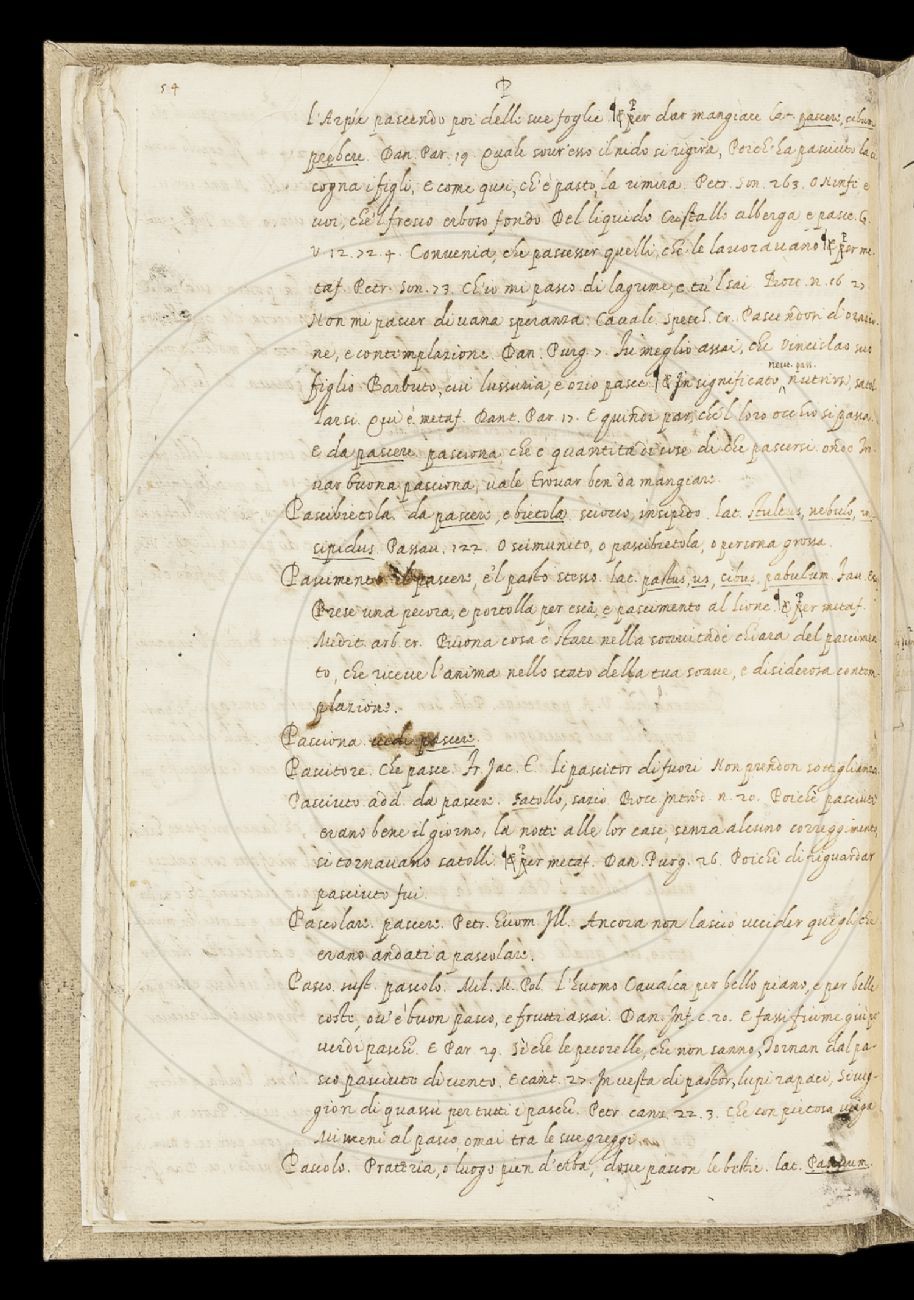 54
P
l'Arpie pascendo poi delle sue foglie ¶ & Per dar mangiare lat. pascere, cibum
prębere. Dan. Par. 19. Quale sour'esso il nido si rigira, Poich'ha pasciuto la ci
cogna i figli, E come quei, ch'è pasto, la rimira. Petr. Son. 263. O Ninfe, e
voi, che'l fresco erboso fondo Del liquido Cristallo alberga e pasce. G.
V. 12. 72. 4. Convenia, che pascesser quelli, che le lavoravano ¶ & Per me
taf. Petr. Son. 73. Ch'io mi pasco di lagrime, e tu'l sai Bocc. n. 16 27.
Non mi pascer di vana speranza. Cavalc. Specc. Cr. Pascendosi d'orazio
ne, e contemplazione. Dan. Purg. 7. Fu meglio assai, che Vincislao suo
neut. pass.
figlio Barbuto, cui lussuria, e ozio pasce ¶ & In significato nutrirsi, satol
larsi. Qui è metaf. Dant. Par. 17. E quindi par, che'l loro occhio si pasca.
E da pascere pasciona che è quantità di cose di che pascersi. onde Tro
var buona pasciona, vale trovar ben da mangiare.
Pascibietola. da pascere, e bietola. sciocco, insipido. lat. stultus, nebulo, in
sipidus. Passau. 122. O scimunito, o pascibietola, o persona grossa.
Pascimento il pascere, e'l pasto stesso. lat. pastus, us, cibus, pabulum. Fau. Es.
Prese una pecora, e portolla per esca, e pascimento al lione. ¶ & Per metaf.
Medit. arb. cr. Buona cosa è stare nella soavità de chiara del pascimen
to, che riceve l'anima nello stato della tua soave, e disiderosa contem
plazione.
Pasciona vedi pascere.
Pascitore. Che pasce. Fr. Jac. T. Li pascitor di fuori Non prendon sottiglianza
Pasciuto. add. da pascere. Satollo, sazio. Bocc. Introd. n. 20. Poichè pasciuti
erano bene il giorno, la notte alle lor case, senza alcuno correggimento
si tornavano satolli. ¶ & Per metaf. Dan. Purg. 26. Poichè di riguardar
pasciuto fui.
Pascolare. pascere. Petr. Vuom. Ill. Ancora non lasciò uccider quegli, che
erano andati a pascolare.
Pasco. sust. pascolo. Mil. M. Pol. L'huomo Cavalca per bello piano, e per belle
coste, ou'è buon pasco, e frutti assai. Dan. Inf. c. 20. E fassi fiume giù pe'
verdi paschi. E Par. 29. Sì che le pecorelle, che non sanno, Tornan dal pa-
sco pasciute di vento. E cant. 27. In vesta di pastor, lupi rapaci, Si veg-
gion di quassù per tutti i paschi. Petr. canz. 22. 3. Che con pietosa verga
Mi meni al pasco, omai tra le sue greggi.
Pascolo. Prateria, o luogo pien d'erba, dove pascon le bestie. lat. Pascuum.